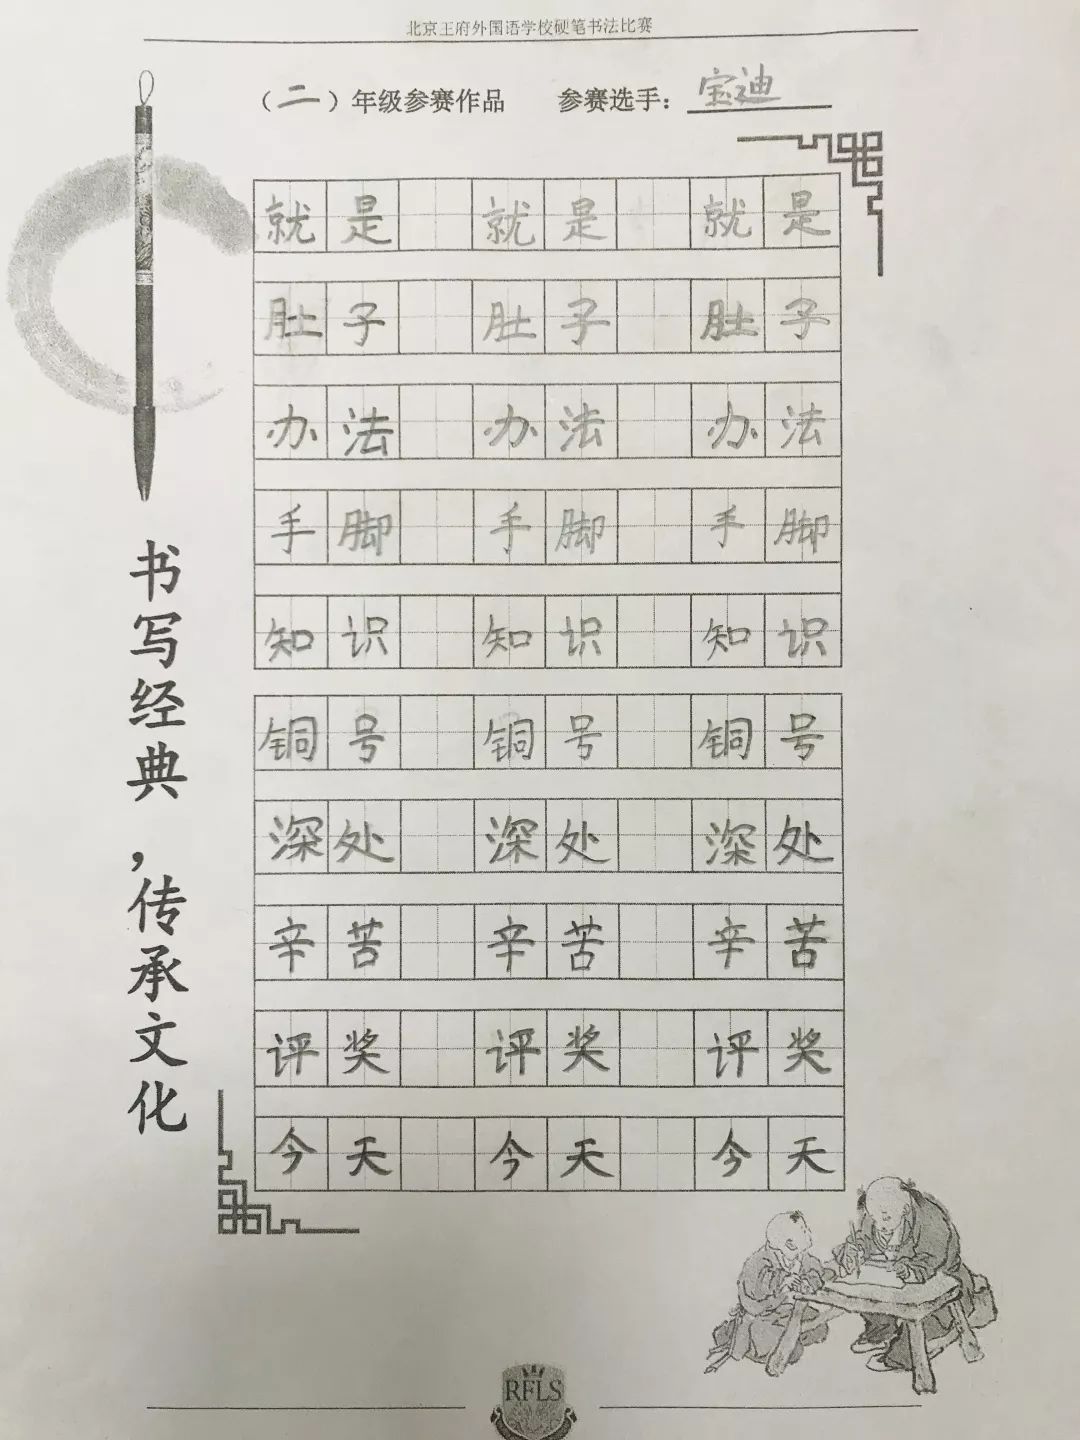 北京王府外国语学校硬笔书法比赛
（二）年级参赛作品 参赛选手：宝迪
就是 就是 就是
肚子 肚子 肚子
办法 办法 办法
手脚 手脚 手脚
知识 知识 知识
铜号 铜号 铜号
深处 深处 深处
辛苦 辛苦 辛苦
评奖 评奖 评奖
今天 今天 今天
书写经典，传承文化
RFLS